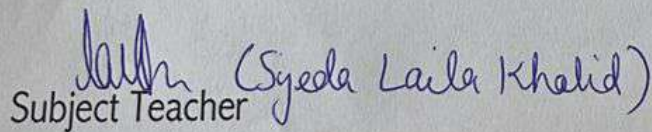 (Syeda Laila Khalid)
Subject Teacher